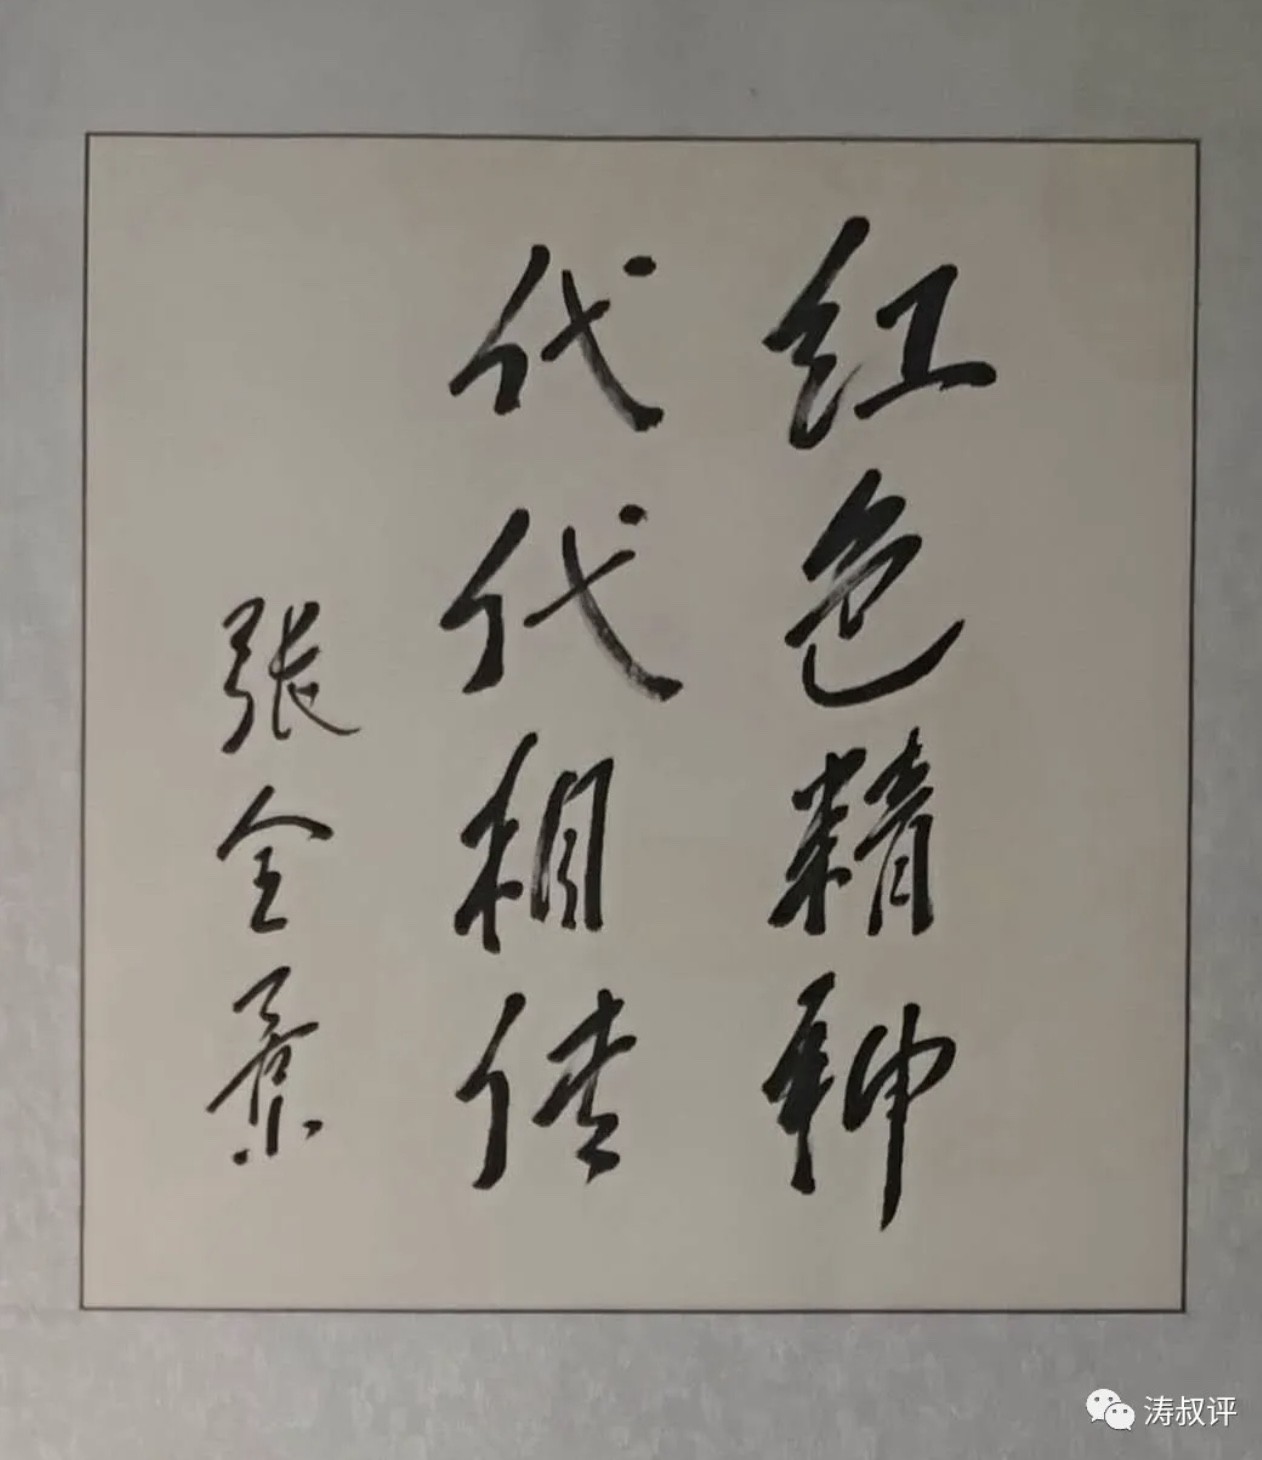 红色精神
代代相传
張全景
涛叔评